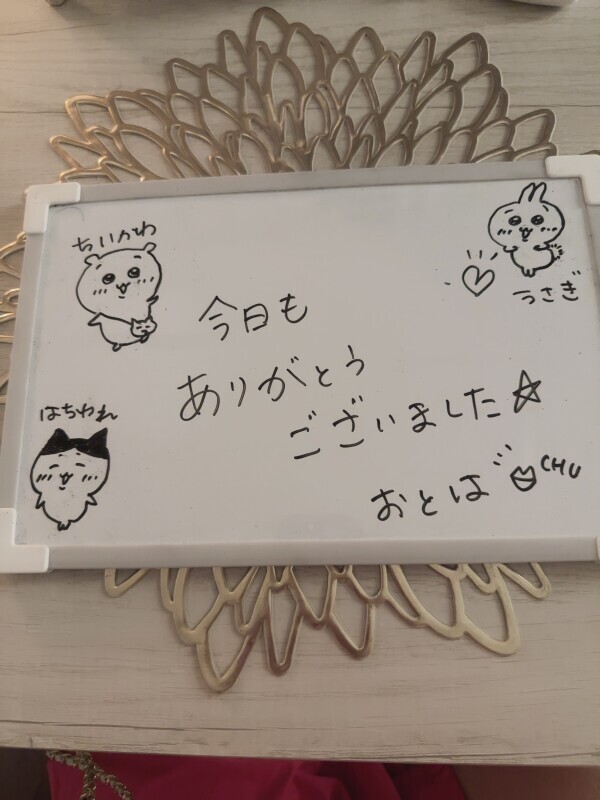 ちいかわ
うさぎ
今日も
ありがとう
ございました☆
はちわれ
おとは
CHU